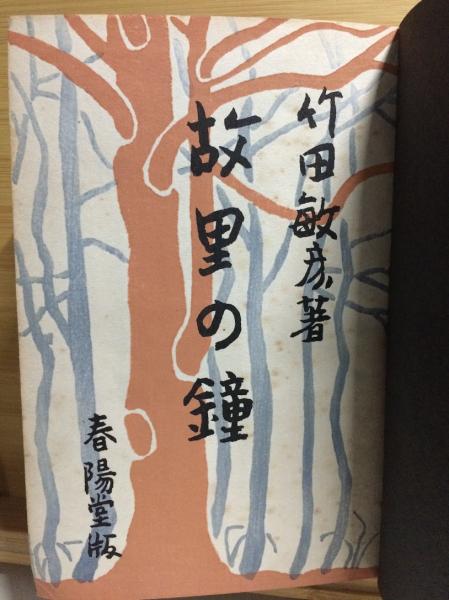 竹田敏彦著
故里の鐘
春陽堂版